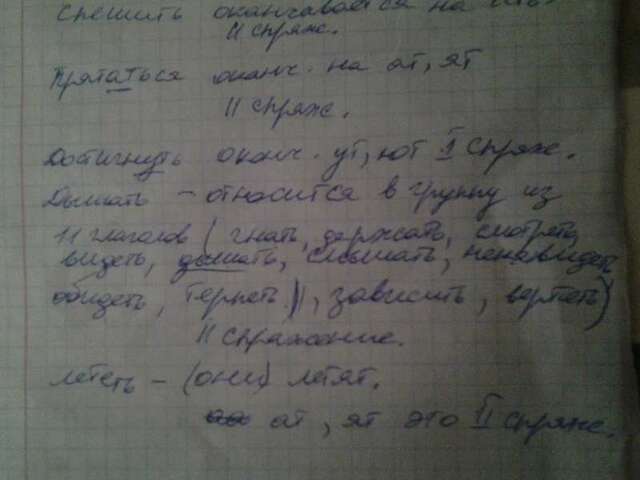 спешить оканчивается на ить.
II спряж.
Прятаться оконч. на ат, ят
II спряж.
Достигнуть оконч. ут, ют I спряж.
Дышать – относится в группу из
11 глаголов (гнать, держать, смотреть,
видеть, дышать, слышать, ненавидеть
обидеть, терпеть, зависить, вертеть)
II спряжение.
лететь – (они) летят.
ат, ят это II спряж.